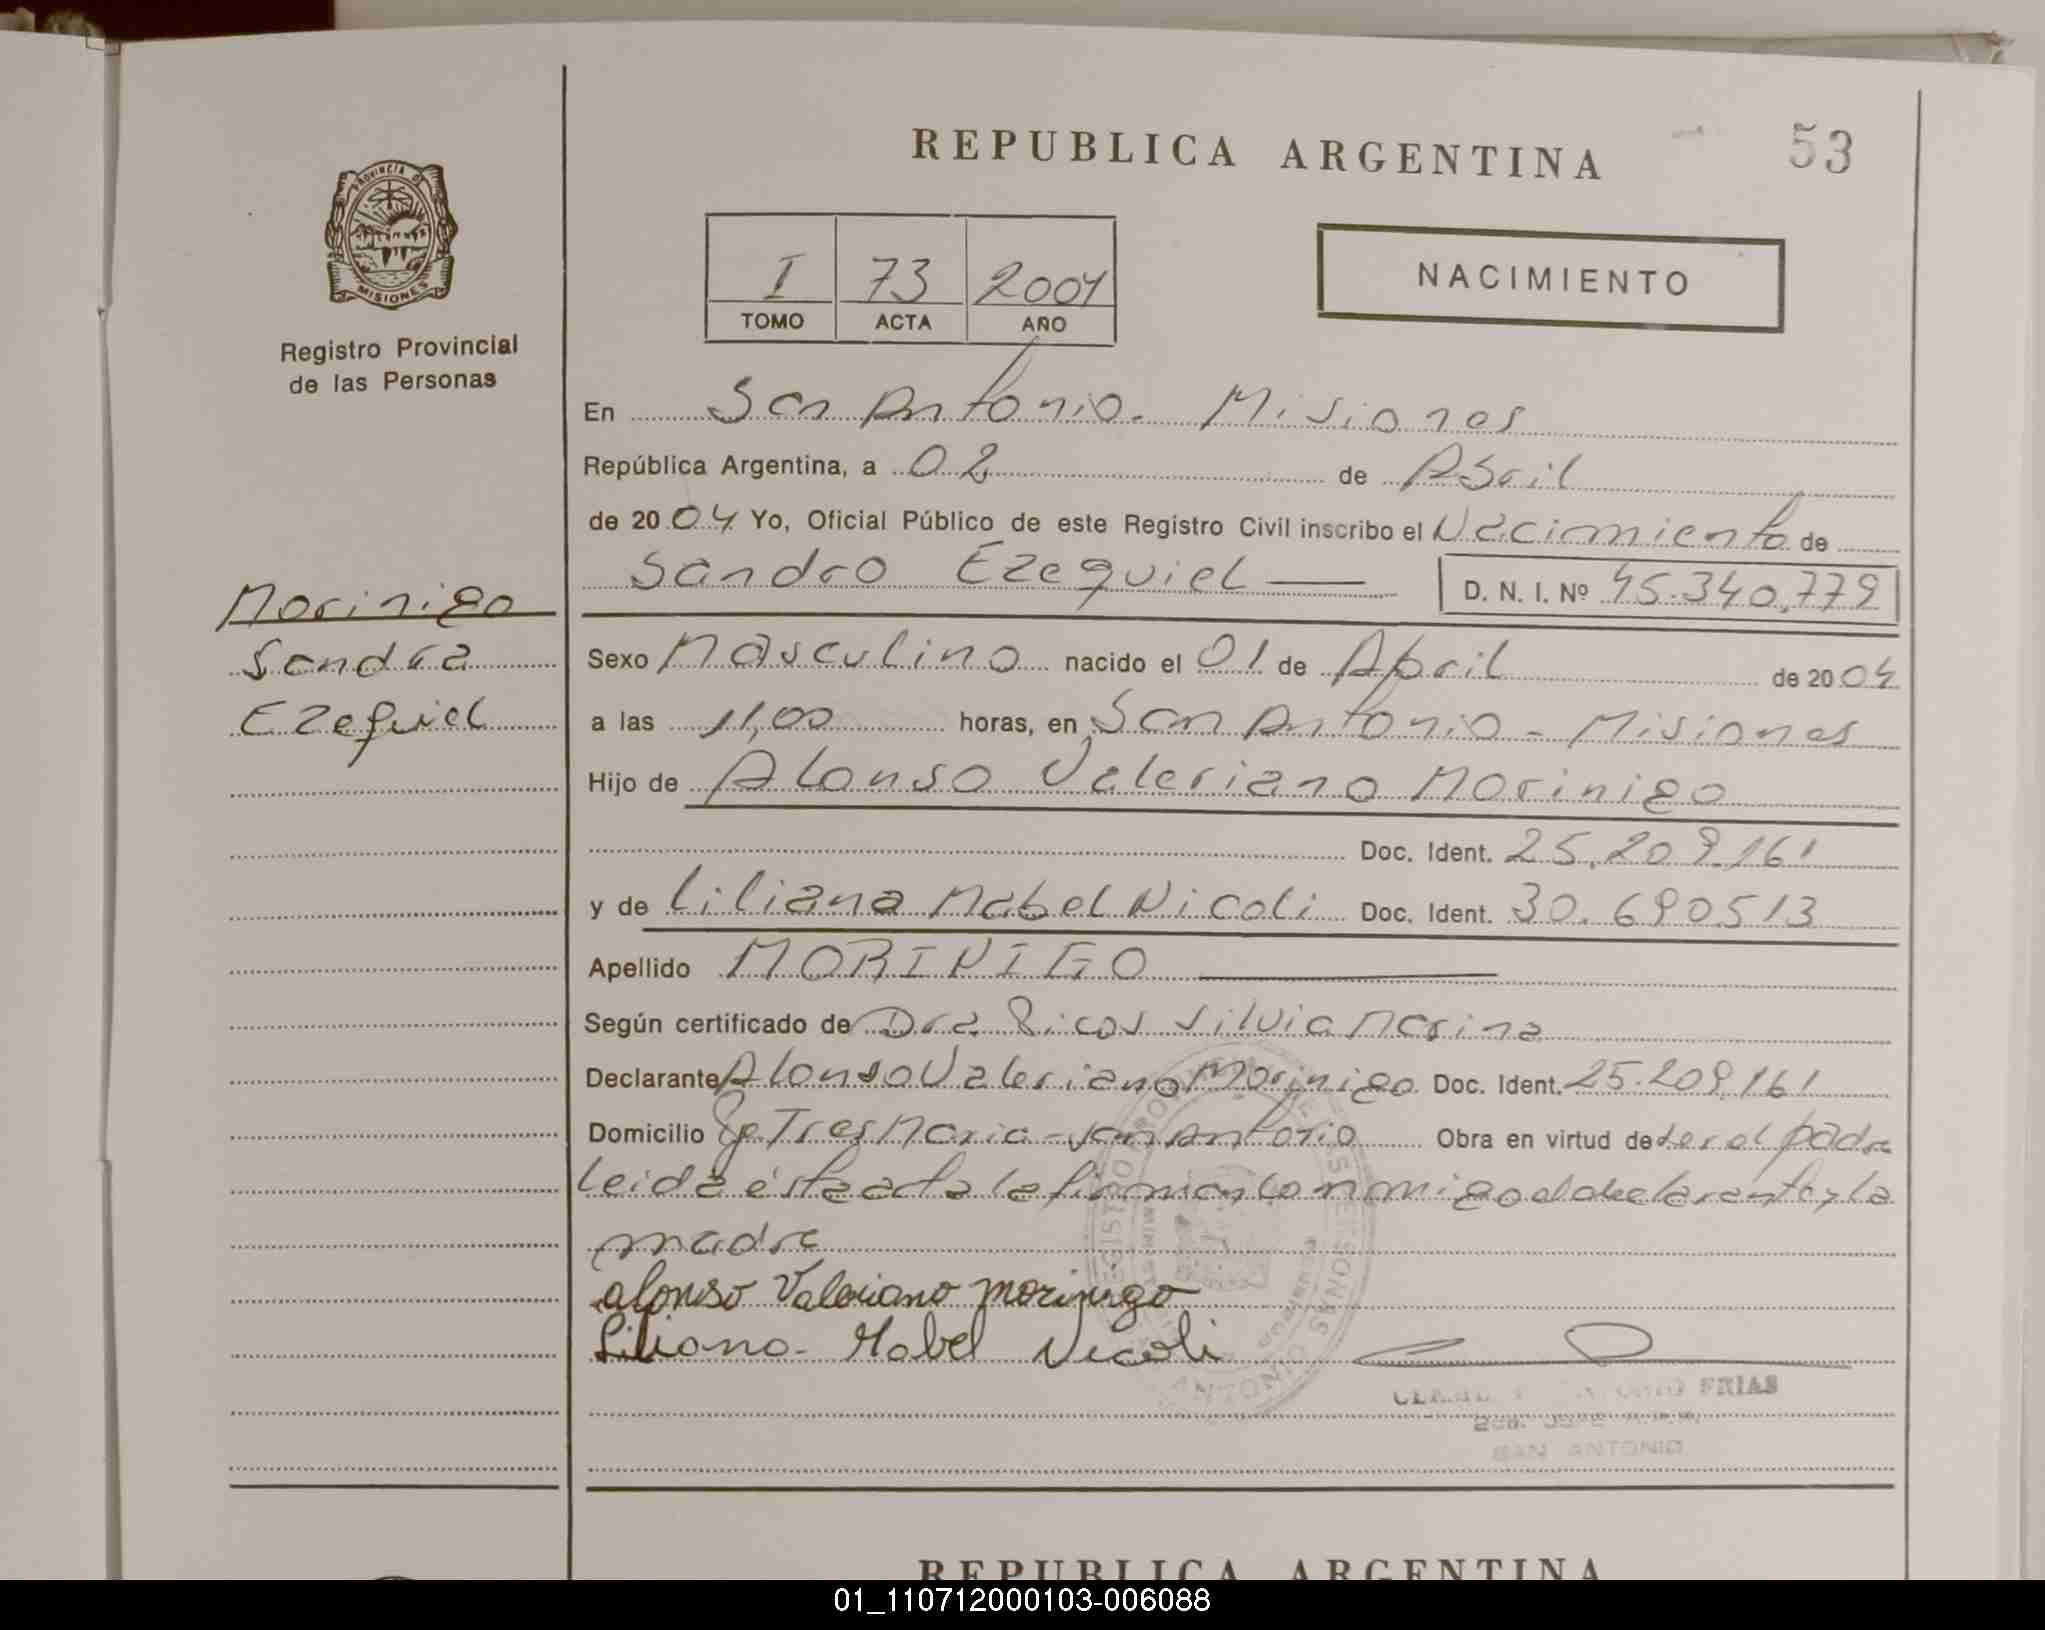 REPUBLICA ARGENTINA
53
PROVINCIA DE
MISIONES
Registro Provincial
de las Personas
I 73 2004
TOMO ACTA AÑO
NACIMIENTO
En San Antonio - Misiones
República Argentina, a 02 de Abril
de 2004 Yo, Oficial Público de este Registro Civil inscribo el Nacimiento de
Sandro Ezequiel D. N. I. Nº 45.340.779
Morinigo
Sandra
Ezequiel
Sexo Masculino nacido el 01 de Abril de 2004
a las 11,00 horas, en San Antonio - Misiones
Hijo de Alonso Valeriano Morinigo
Doc. Ident. 25.209.161
y de Liliana Mabel Nicoli Doc. Ident. 30.690513
Apellido MORINIGO
Según certificado de Dra. Ricos Silvia Marina
Declarante Alonso Valeriano Morinigo Doc. Ident. 25.209.161
Domicilio Tres Maria - San Antonio Obra en virtud de ser el padre
leida ésta acta la firman conmigo el declarante y la
madre
alonso Valeriano morinigo
Liliana Mabel Nicoli
FRIAS
SAN ANTONIO
REPUBLICA ARGENTINA
01_110712000103-006088